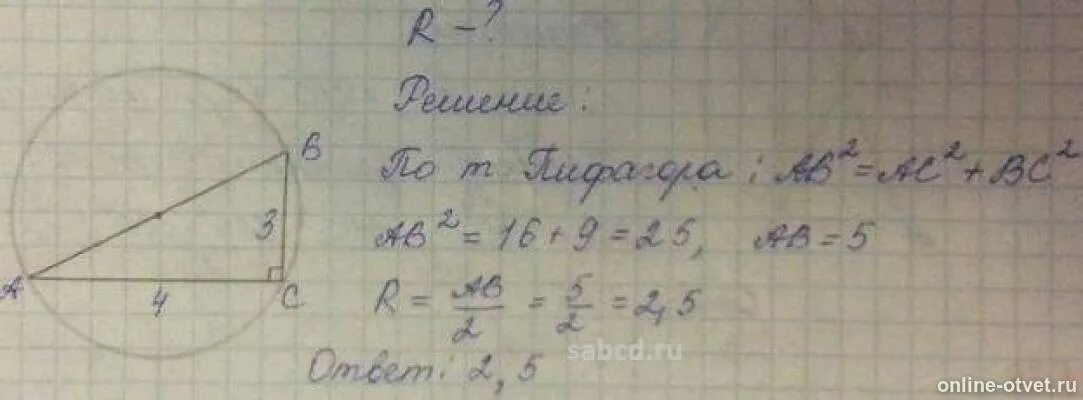 R - ?
Решение :
По т Пифагора : AB² = AC² + BC²
AB² = 16 + 9 = 25, AB = 5
R = AB/2 = 5/2 = 2,5
Ответ: 2,5
B
3
A
4
C
sabcd.ru
online-otvet.ru